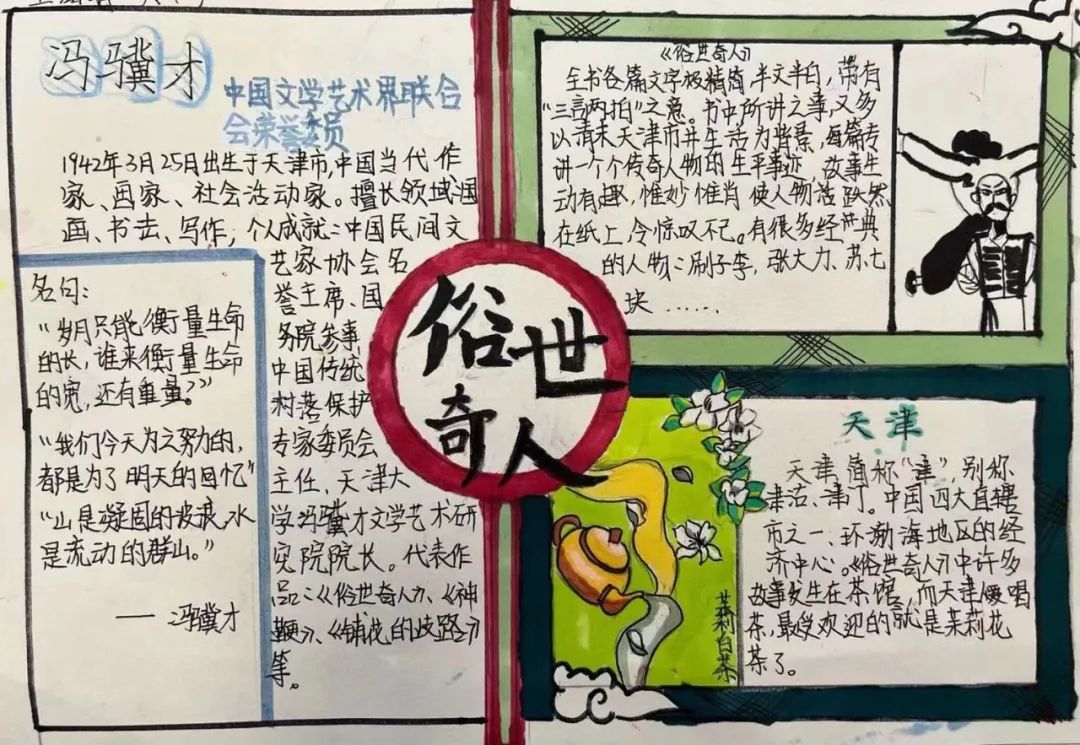 冯骥才
中国文学艺术界联合
会荣誉委员
1942年3月25日出生于天津市,中国当代作
家、画家、社会活动家。擅长领域:国
画、书法、写作;个人成就:中国民间文
艺家协会名
誉主席、国
务院参事
中国传统
村落保护
专家委员会
主任、天津大
学冯骥才文学艺术研
究院院长。代表作
品:《俗世奇人》、《神
鞭》、《铺花的歧路》
等。
名句:
“岁月只能衡量生命
的长,谁来衡量生命
的宽,还有重量?”
“我们今天为之努力的,
都是为了明天的回忆”
“山是凝固的波浪,水
是流动的群山。”
——冯骥才
俗世
奇人
《俗世奇人》
全书各篇文字极精简,半文半白,带有
“三言两拍”之意。书中所讲之事,又多
以清末天津市井生活为背景,每篇专
讲一个个传奇人物的生平事迹,故事生
动有趣,惟妙惟肖 使人物活跃然
在纸上,令惊叹不已。有很多经典
的人物:刷子李,张大力、苏七
块......
天津
天津,简称“津”,别称
津沽、津门。中国四大直辖
市之一、环渤海地区的经
济中心。《俗世奇人》中许多
故事发生在茶馆,而天津人爱喝
茶,最受欢迎的就是茉莉花
茶了。
茉莉白茶